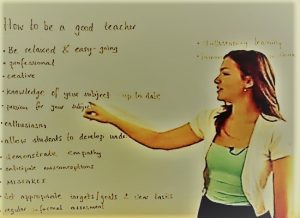 How to be a good teacher
• Be relaxed & easy-going
• professional
• creative
• knowledge of your subject up to date
• passion for your subject
• enthusiasm
• allow students to develop
• demonstrate empathy
• anticipate misconceptions
• mistakes
• Set appropriate targets/goals & clear tasks
regular informal assessment
learning